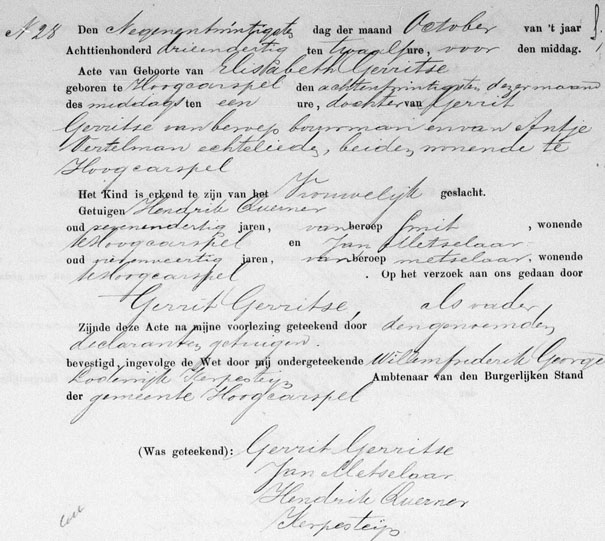 N 28 Den Negenentwintigsten dag der maand October van 't jaar
Achttienhonderd drieendertig ten twaalf ure, voor den middag.
Acte van Geboorte van Elisabeth Gerritse
geboren te Hoogcarspel den achtentwintigsten dezer maand
des middags ten een ure, dochter van Gerrit
Gerritse van beroep bouwman en van Antje
Vertelman echtelieden, beiden wonende te
Hoogcarspel
Het Kind is erkend te zijn van het Vrouwelijk geslacht.
Getuigen Hendrik Querner
oud zevenendertig jaren, van beroep smit, wonende
te Hoogcarspel en Jan Metselaar
oud jaren, van beroep metselaar, wonende
te Hoogcarspel. Op het verzoek aan ons gedaan door
Gerrit Gerritse, als vader
Zijnde deze Acte na mijne voorlezing geteekend door den genoemden
declarant en getuigen.
bevestigd, ingevolge de Wet door mij ondergeteekende Willem frederik George
Lodewijk Kerpesteijn Ambtenaar van den Burgerlijken Stand
der gemeente Hoogcarspel
(Was geteekend): Gerrit Gerritse
Jan Metselaar
Hendrik Querner
Kerpesteijn